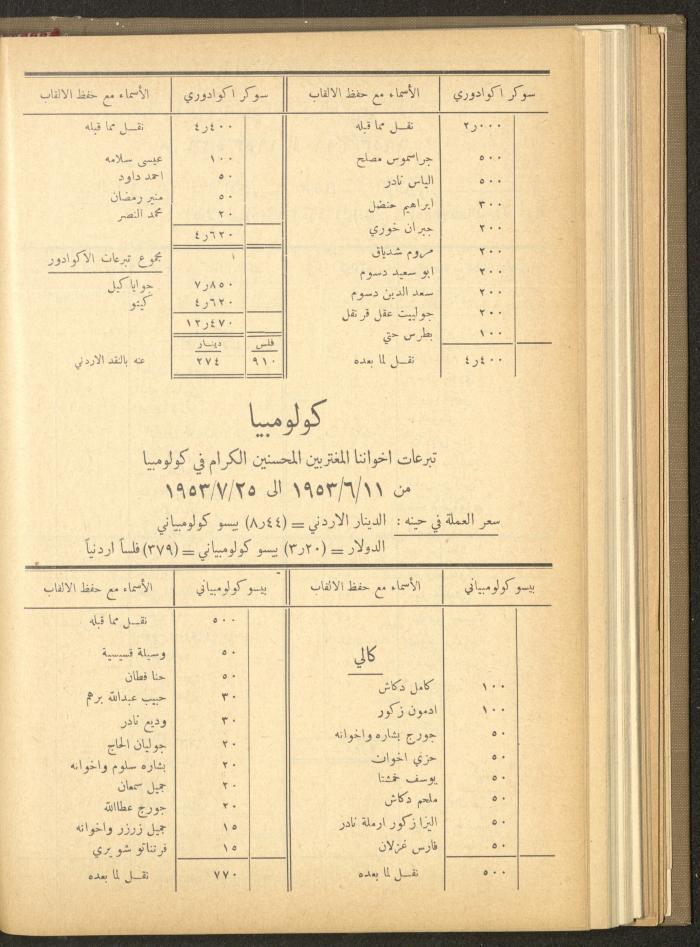 سوكر اكوادوري الأسماء مع حفظ الالقاب
٢٫٠٠٠ نقل مما قبله
٥٠٠ جراسموس مصلح
٥٠٠ الياس نادر
٣٠٠ ابراهيم حنضل
٢٠٠ جبران خوري
٢٠٠ مروم شدياق
٢٠٠ ابو سعيد دسوم
٢٠٠ سعد الدين دسوم
٢٠٠ جولييت عقل قرنفل
١٠٠ بطرس حتي
٤٫٤٠٠ نقل لما بعده
سوكر اكوادوري الأسماء مع حفظ الالقاب
٤٫٤٠٠ نقل مما قبله
١٠٠ عيسى سلامه
٥٠ احمد داود
٥٠ منير رمضان
٢٠ محمد النصر
٤٫٦٢٠
مجموع تبرعات الاكوادور
٧٫٨٥٠ جوايا كيل
٤٫٦٢٠ كيتو
١٢٫٤٧٠
فلس دينار
٩١٠ ٢٧٤ عنه بالنقد الاردني
كولومبيا
تبرعات اخواننا المغتربين المحسنين الكرام في كولومبيا
من ١٩٥٣/٦/١١ الى ١٩٥٣/٧/٢٥
سعر العملة في حينه : الدينار الاردني = (٨٫٤٤) بيسو كولومبياني
الدولار = (٣٫٢٠) بيسو كولومبياني = (٣٧٩) فلساً اردنياً
بيسو كولومبياني الأسماء مع حفظ الالقاب
كالي
١٠٠ كامل دكاش
١٠٠ ادمون زكور
٥٠ جورج بشاره واخوانه
٥٠ حزي اخوات
٥٠ يوسف خمشتا
٥٠ ملحم دكاش
٥٠ اليزا زكور ارملة نادر
٥٠ فارس غزلان
٥٠٠ نقل لما بعده
بيسو كولومبياني الأسماء مع حفظ الالقاب
٥٠٠ نقل مما قبله
٥٠ وسيلة قسيسية
٥٠ حنا قطان
٣٠ حبيب عبدالله برهم
٣٠ وديع نادر
٢٠ جوليان الحاج
٢٠ بشاره سلوم واخوانه
٢٠ جميل سمعان
٢٠ جورج عطاالله
١٥ جميل زرزر واخوانه
١٥ فرتناتو شويري
٧٧٠ نقل لما بعده